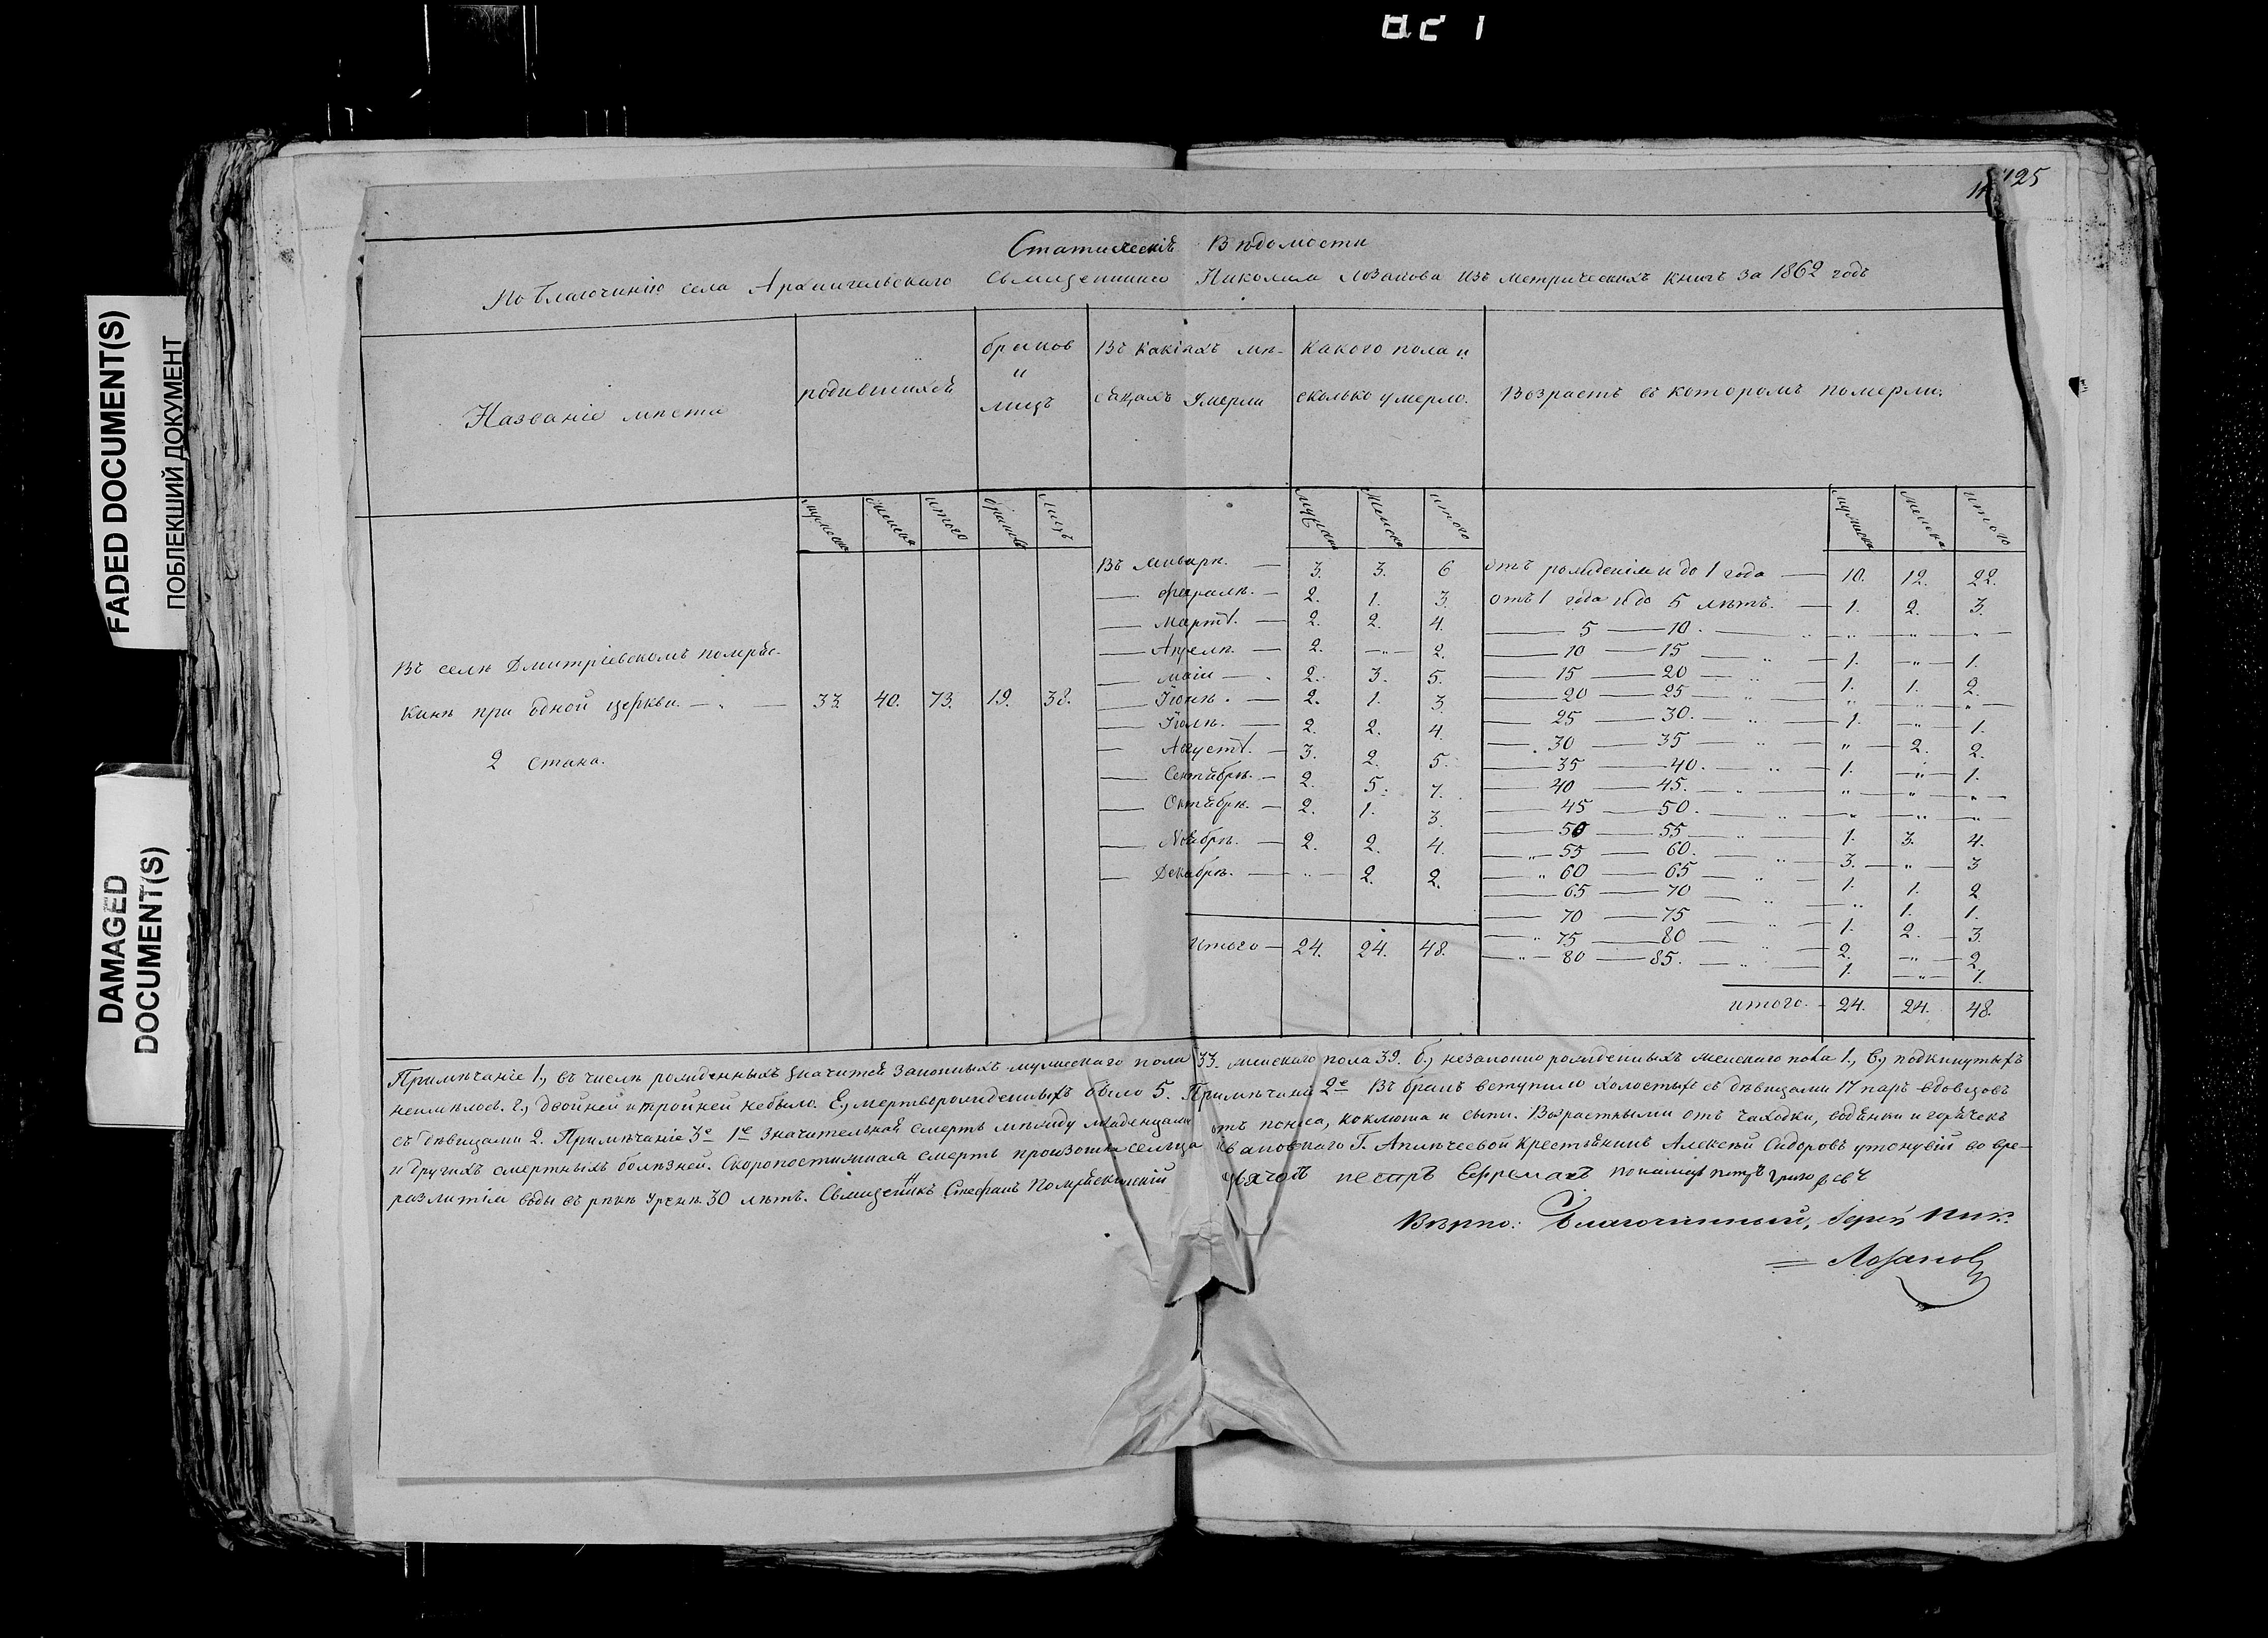 821
125
Статическія Вѣдомости
По благочинію села Архангельскаго Священника Николая Лозанова изъ метрическихъ книгъ за 1862 годъ
Названіе мѣста
родившихся
браковъ
и
лицъ
Въ какихъ мѣ-
сяцахъ умерли
Какого пола и
сколько умерло.
Возрастъ въ которомъ померли.
мужеска женска итого браковъ лицъ
мужеска женска итого
мужеска женска итого
Въ селѣ Дмитріевскомъ Помряс-
кинѣ при одной церкви. — 33. 40. 73. 19. 38.
2 стана.
Въ Январѣ. — 3. 3. 6
— Февралѣ. — 2. 1. 3.
— Мартѣ. — 2. 2. 4.
— Апрелѣ. — 2. — „ — 2.
— Маіи — 2. 3. 5.
— Іюнѣ. — 2. 1. 3
— Іюлѣ. — 2. 2. 4.
— Августѣ. — 3. 2. 5.
— Сентябрѣ. — 2. 5. 7.
— Октябрѣ. — 2. 1. 3.
— Ноябрѣ. — 2. 2. 4.
— Декабрѣ. — „ — 2. 2.
Итого — 24. 24. 48.
отъ рожденія и до 1 года — 10. 12. 22.
отъ 1 года и до 5 лѣтъ. — 1. 2. 3.
— 5 — 10. — „ — „ — „ —
— 10 — 15 — „ — 1. — „ — 1.
— 15 — 20 — „ — 1. 1. 2.
— 20 — 25 — „ — „ — „ — „ —
— 25 — 30. — „ — 1. — „ — 1.
— 30 — 35 — „ — „ — 2. 2.
— 35 — 40. — „ — 1. — „ — 1.
— 40 — 45. — „ — „ — „ — „ —
— 45 — 50. — „ — „ — „ — „ —
— 50 — 55 — „ — 1. 3. 4.
— „ 55 — 60. — „ — 3. — „ — 3
— „ 60 — 65 — „ — 1. 1. 2
— 65 — 70 — „ — „ — 1. 1.
— 70 — 75 — „ — 1. 2. 3.
— „ 75 — 80 — „ — 2. — „ — 2
— „ — 80 — 85. — „ — 1. — „ — 1.
итого. — 24. 24. 48.
Примѣчаніе 1., въ числѣ рожденныхъ значится законныхъ мужескаго пола 33. женскаго пола 39. б., незаконно рожденныхъ женскаго пола 1., в., подкинутыхъ
неимѣлось. г., двойней и тройней небыло. Е., мертворожденныхъ было 5. Примѣчаніе 2е Въ бракъ вступило холостыхъ съ дѣвицами 17 паръ вдовцовъ
съ дѣвицами 2. Примѣчаніе 3е 1е Значительная смерть между младенцами отъ поноса, коклюша и сыпи. Возрастными отъ чахотки, водянки и горячекъ
и другихъ смертныхъ болѣзней. Скоропостижная смерть произошла сельца Ивановскаго Г. Апличеевой крестьянинъ Алексѣй Сидоровъ утонувій во вре-
разлитія воды въ рѣкѣ Уренѣ 30 лѣтъ. Священникъ Стефанъ Помряскинскій дьячокъ петръ Ефремовъ пономарь петръ григорьевъ
Вѣрно: Благочинный, Іерей Ник.
= Лозановъ
FADED DOCUMENT(S)
ПОБЛЕКШИЙ ДОКУМЕНТ
DAMAGED
DOCUMENT(S)